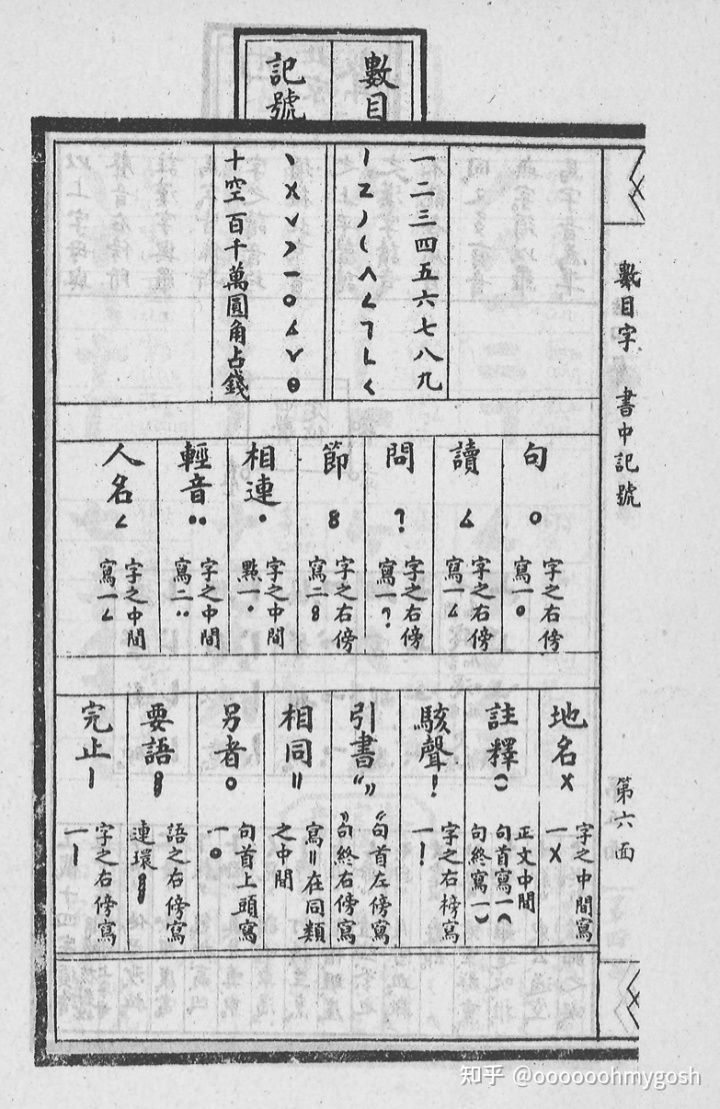 數目
記號
數目字 書中記號
第六面
一二三四五六七八九
十空百千萬圓角占錢
句 ○
字之右傍
寫一○
讀
字之右傍
寫一
問 ?
字之右傍
寫一?
節 8
字之右傍
寫二8
相連 •
字之中間
點一•
輕音 ••
字之中間
寫二••
人名ㄥ
字之中間
寫一ㄥ
地名 X
字之中間寫
一X
註釋 ()
正文中間
句首寫一(
句終寫一)
駭聲 !
字之右榜寫
一!
引書 “”
“句首左傍寫
”句終右傍寫
相同 ||
寫||在同類
之中間
另者 ○
句首上頭寫
一○
要語
語之右傍寫
連環
完止 |
字之右傍寫
一|
知乎 @ooooooohmygosh